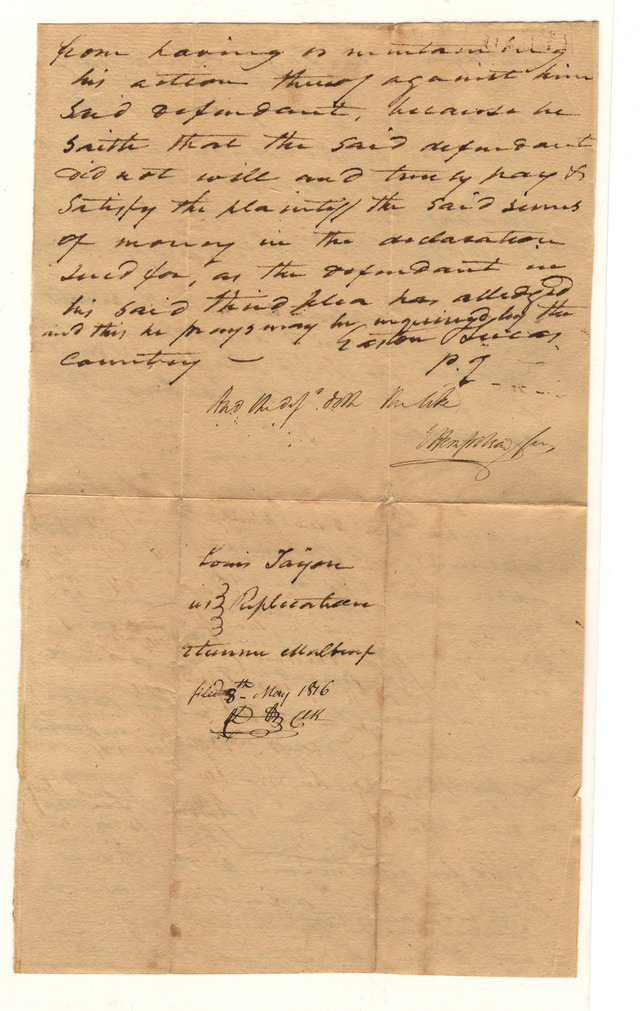 from having or maintaining
his action thereof against him
said defendant, because he
saith that the said defendant
did not well and truly pay &
satisfy the plaintiff the said sums
of money in the declaration
sued for, as the defendant in
his said third plea has alledged
and this he prays may be inquired of by the
country — Easton Lucas
P. Q
And the deft. doth the like
E Hempstead for
Louis Tayon
vs } Replication
Etienne Malboeuf
filed 8th May 1816
Clk